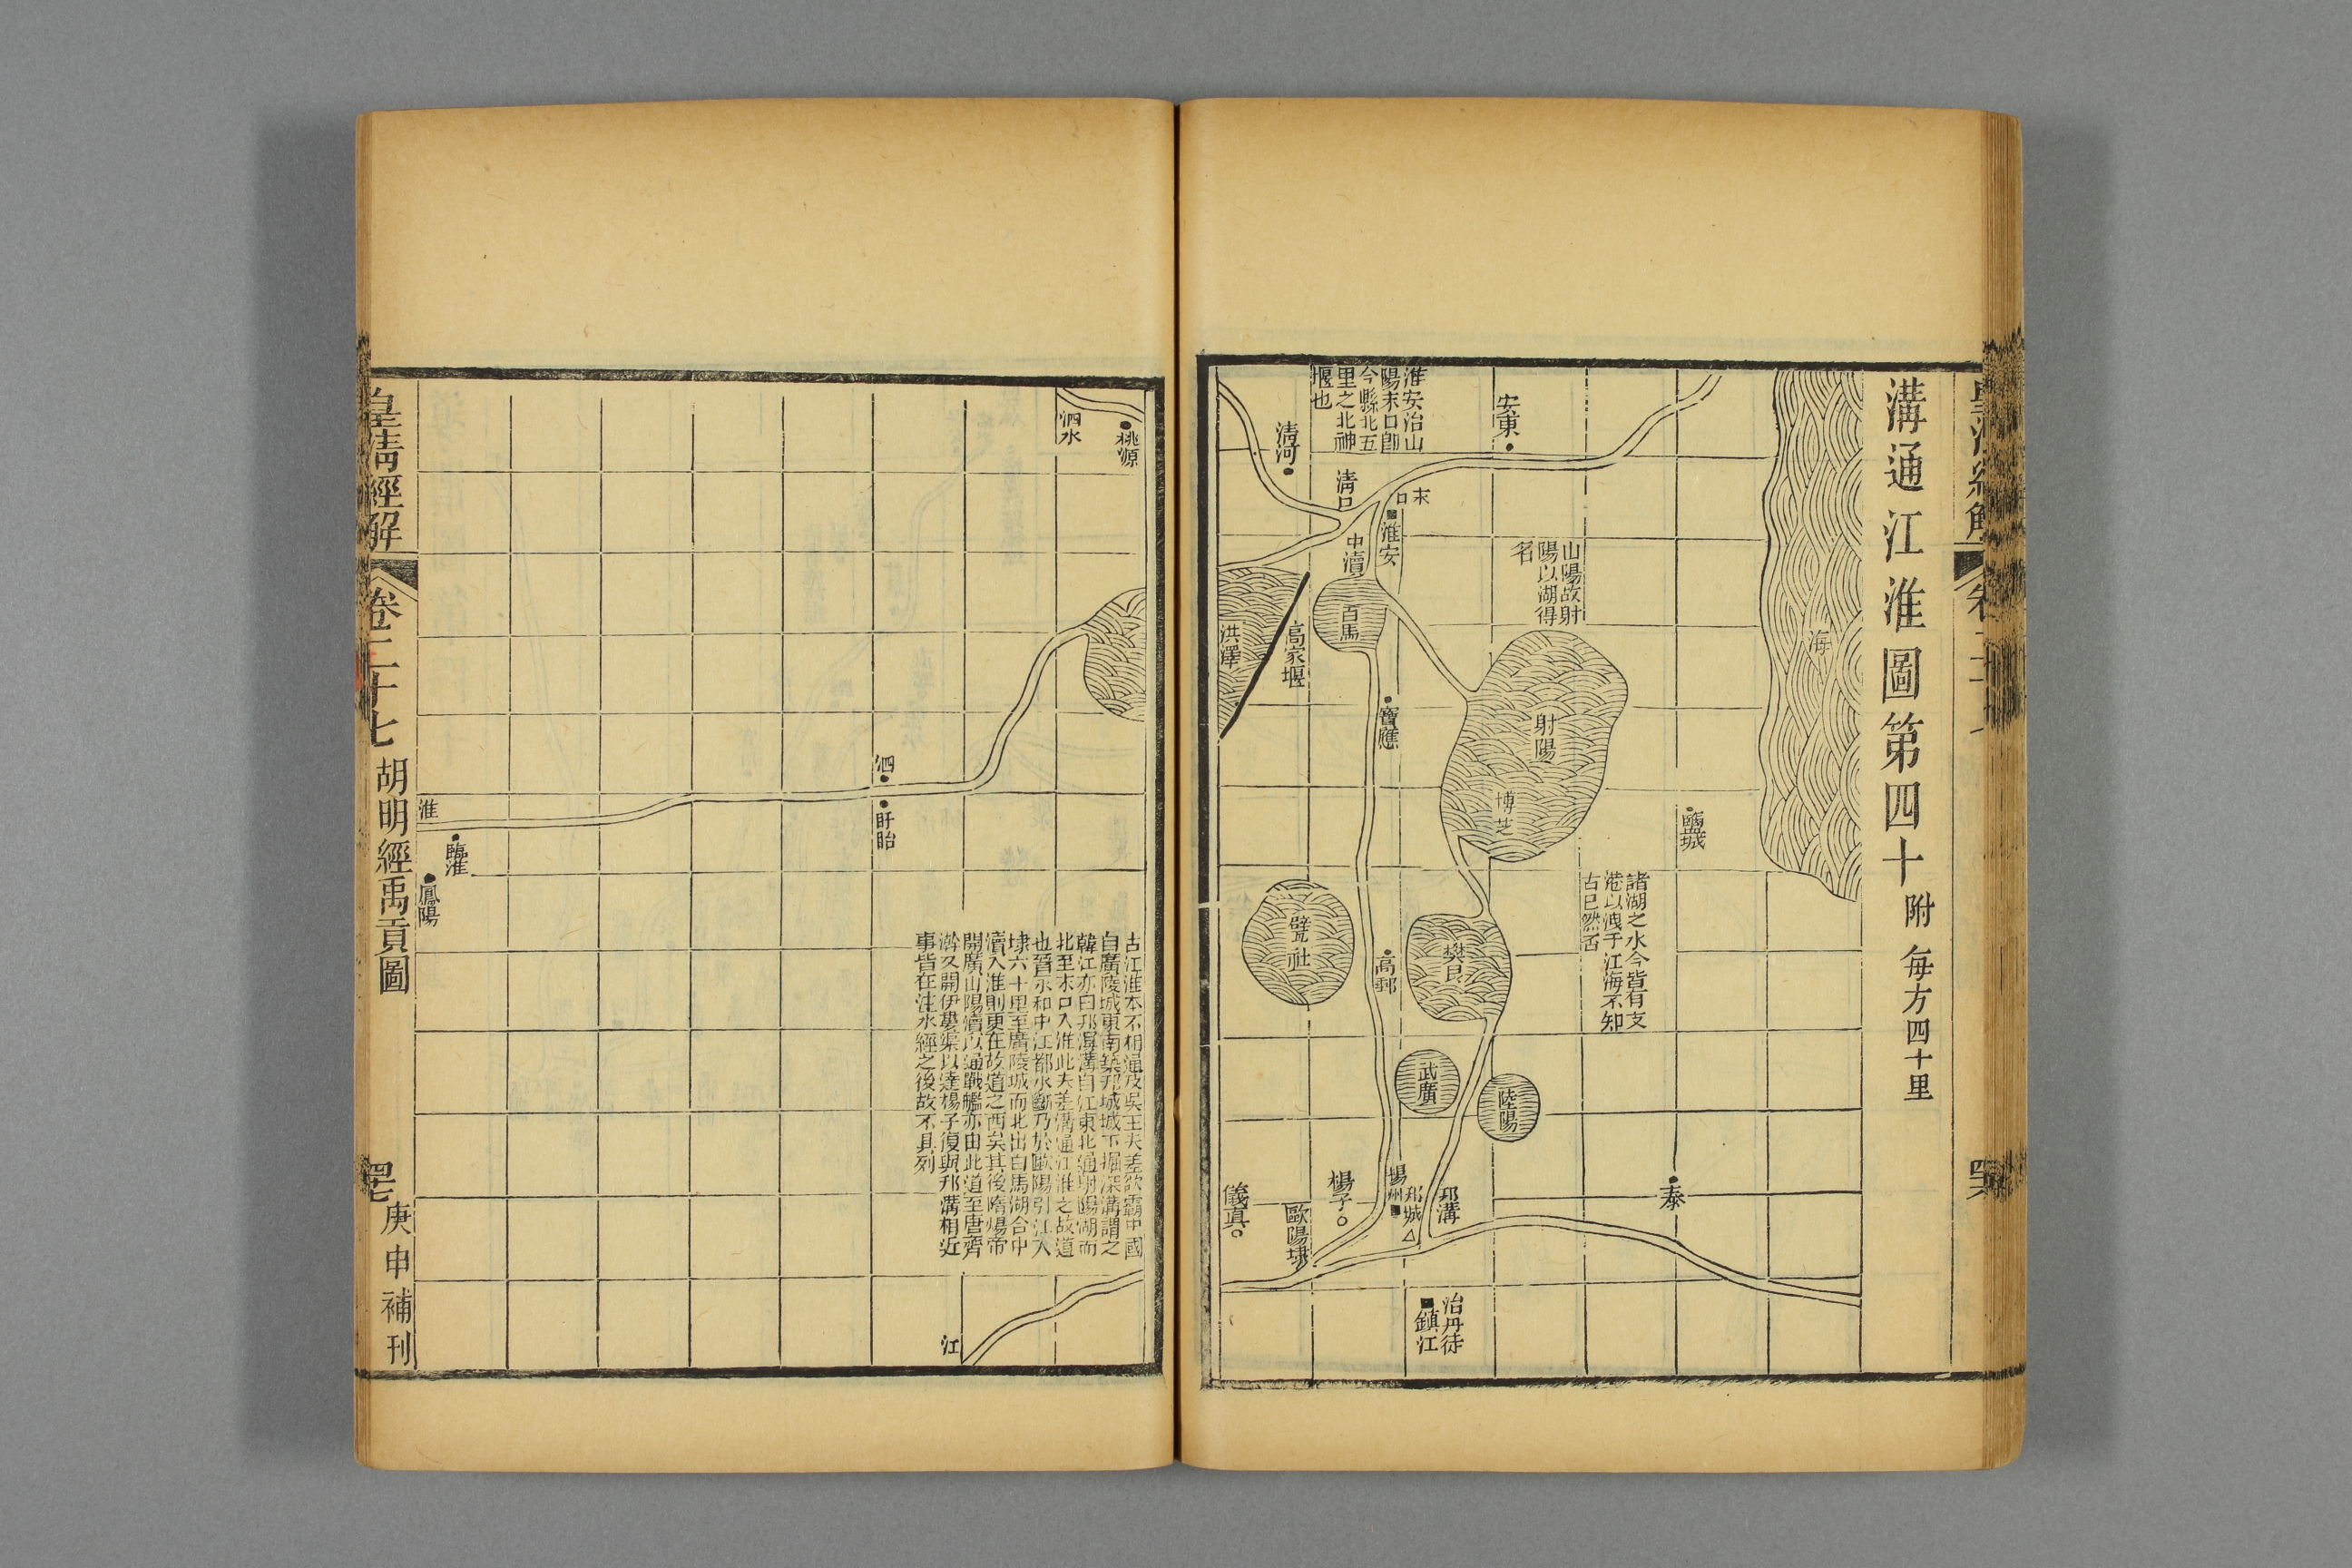 溝通江淮圖第四十附 每方四十里
海
安東
淮安治山
陽末口卽
今縣北五
里之北神
堰也
清河
清口
末口
淮安
中瀆
山陽故射
陽以湖得
名
白馬
洪澤
高家堰
射陽
博芝
寶應
鹽城
諸湖之水今皆有支
港以洩于江海不知
古已然否
甓社
高郵
樊良
武廣
陸陽
泰
邗溝
邗城
揚州
楊子
歐陽埭
儀真
治丹徒
鎮江
桃源
泗水
泗
盱眙
淮
臨淮
鳳陽
古江淮本不相通及吳王夫差欲霸中國
自廣陵城東南築邗城城下掘深溝謂之
韓江亦曰邗溟溝自江東北通射陽湖而
北至末口入淮此夫差溝通江淮之故道
也晉永和中江都水斷乃於歐陽引江入
埭六十里至廣陵城而北出白馬湖合中
瀆入淮則更在故道之西矣其後隋煬帝
開廣山陽瀆以通戰艦亦由此道至唐齊
澣又開伊婁渠以達楊子復與邗溝相近
事皆在注水經之後故不具列
江
皇清經解
卷二十七
胡明經禹貢圖
四七
庚申補刊